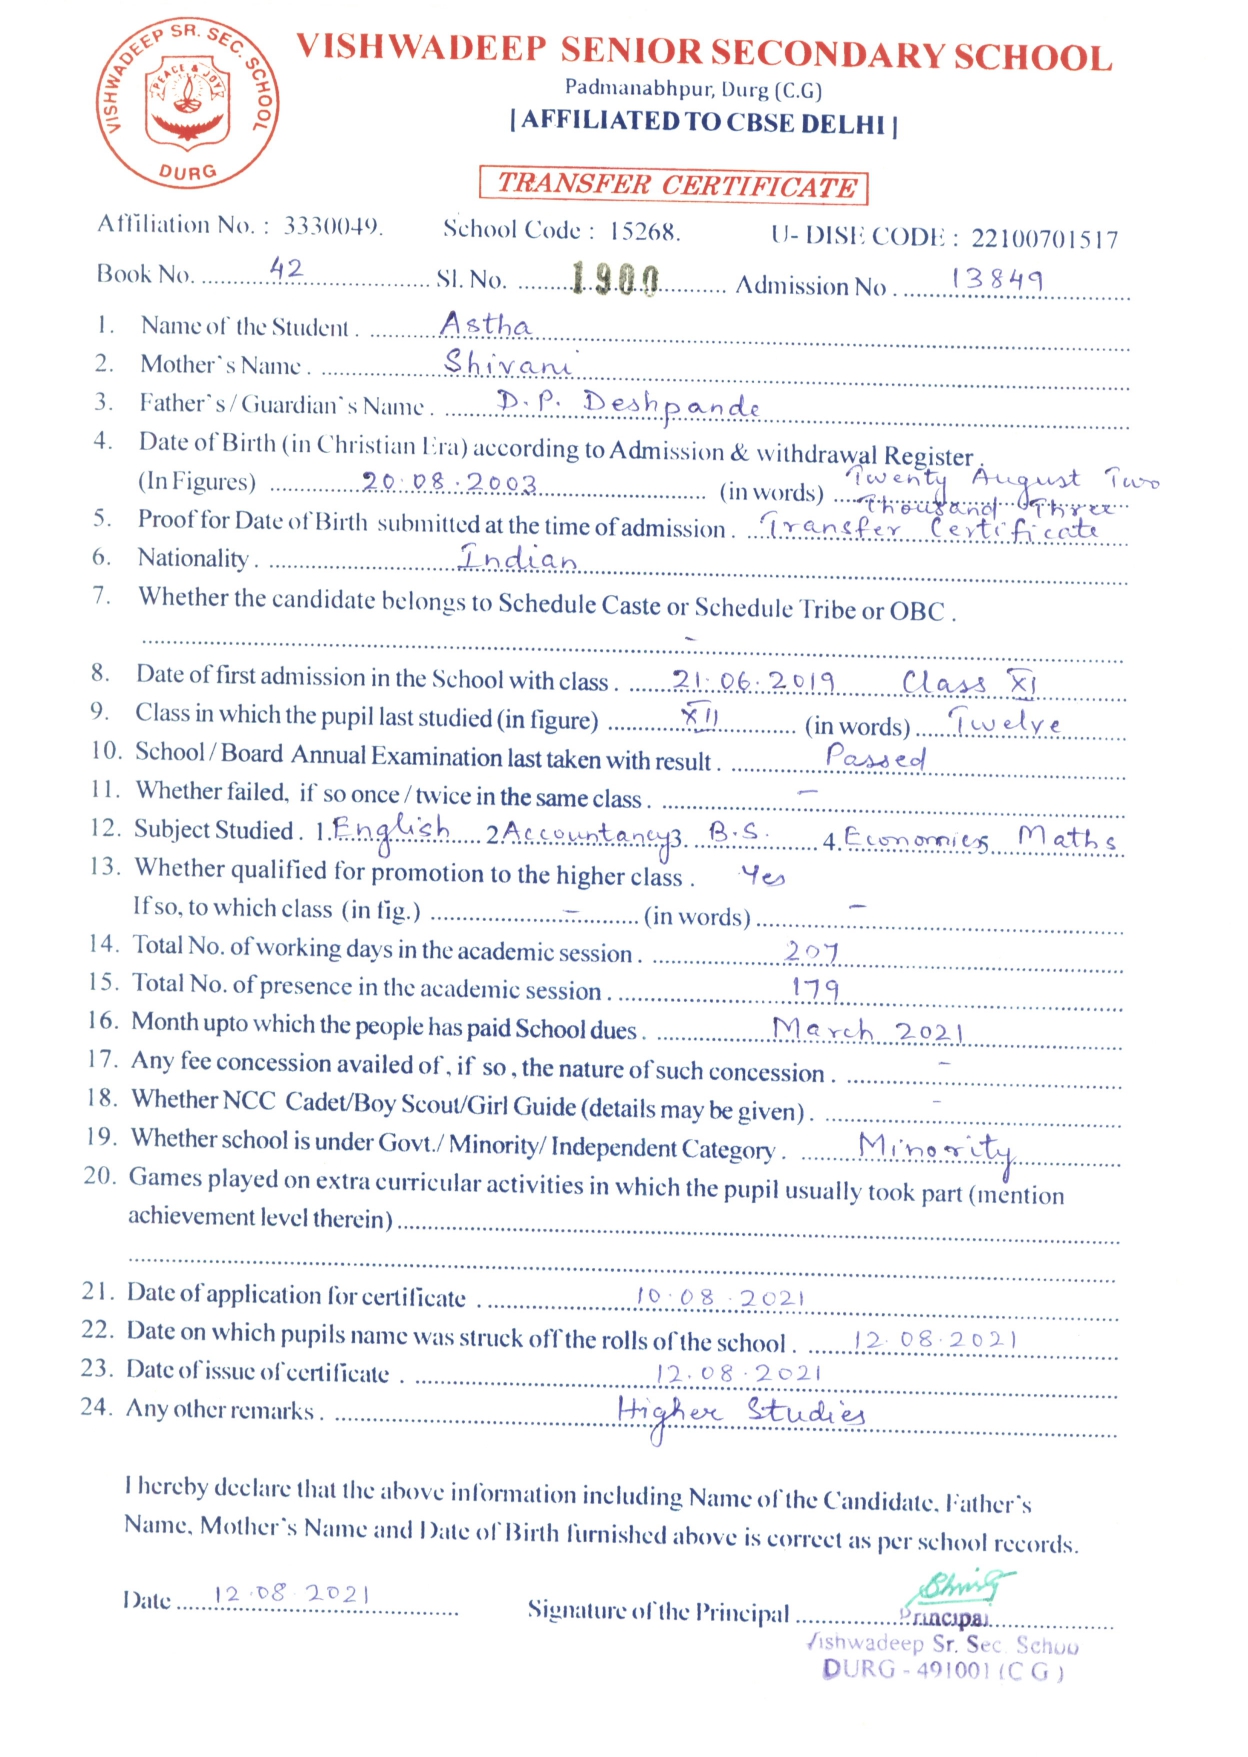 VISHWADEEP SR. SEC. SCHOOL
PEACE & JOY
DURG
VISHWADEEP SENIOR SECONDARY SCHOOL
Padmanabhpur, Durg (C.G)
| AFFILIATED TO CBSE DELHI |
TRANSFER CERTIFICATE
Affiliation No. : 3330049. School Code : 15268. U- DISE CODE : 22100701517
Book No. 42 Sl. No. 1900 Admission No. 13849
1. Name of the Student. Astha
2. Mother's Name. Shivani
3. Father's/Guardian's Name. D.P. Deshpande
4. Date of Birth (in Christian Era) according to Admission & withdrawal Register.
(In Figures) 20.08.2003 (in words) Twenty August Two
Thousand Three
5. Proof for Date of Birth submitted at the time of admission. Transfer Certificate
6. Nationality. Indian
7. Whether the candidate belongs to Schedule Caste or Schedule Tribe or OBC.
-
8. Date of first admission in the School with class. 21.06.2019 Class XI
9. Class in which the pupil last studied (in figure) XII (in words) Twelve
10. School/Board Annual Examination last taken with result. Passed
11. Whether failed, if so once/twice in the same class. -
12. Subject Studied. 1. English 2. Accountancy 3. B.S. 4. Economics 5. Maths
13. Whether qualified for promotion to the higher class. Yes
If so, to which class (in fig.) - (in words) -
14. Total No. of working days in the academic session. 207
15. Total No. of presence in the academic session. 179
16. Month upto which the people has paid School dues. March 2021
17. Any fee concession availed of, if so, the nature of such concession. -
18. Whether NCC Cadet/Boy Scout/Girl Guide (details may be given). -
19. Whether school is under Govt./Minority/Independent Category. Minority
20. Games played on extra curricular activities in which the pupil usually took part (mention
achievement level therein)
21. Date of application for certificate. 10.08.2021
22. Date on which pupils name was struck off the rolls of the school. 12.08.2021
23. Date of issue of certificate. 12.08.2021
24. Any other remarks. Higher Studies
I hereby declare that the above information including Name of the Candidate, Father's
Name, Mother's Name and Date of Birth furnished above is correct as per school records.
Date 12.08.2021 Signature of the Principal
Principal
Vishwadeep Sr. Sec. Schoo
DURG - 491001 (C G)